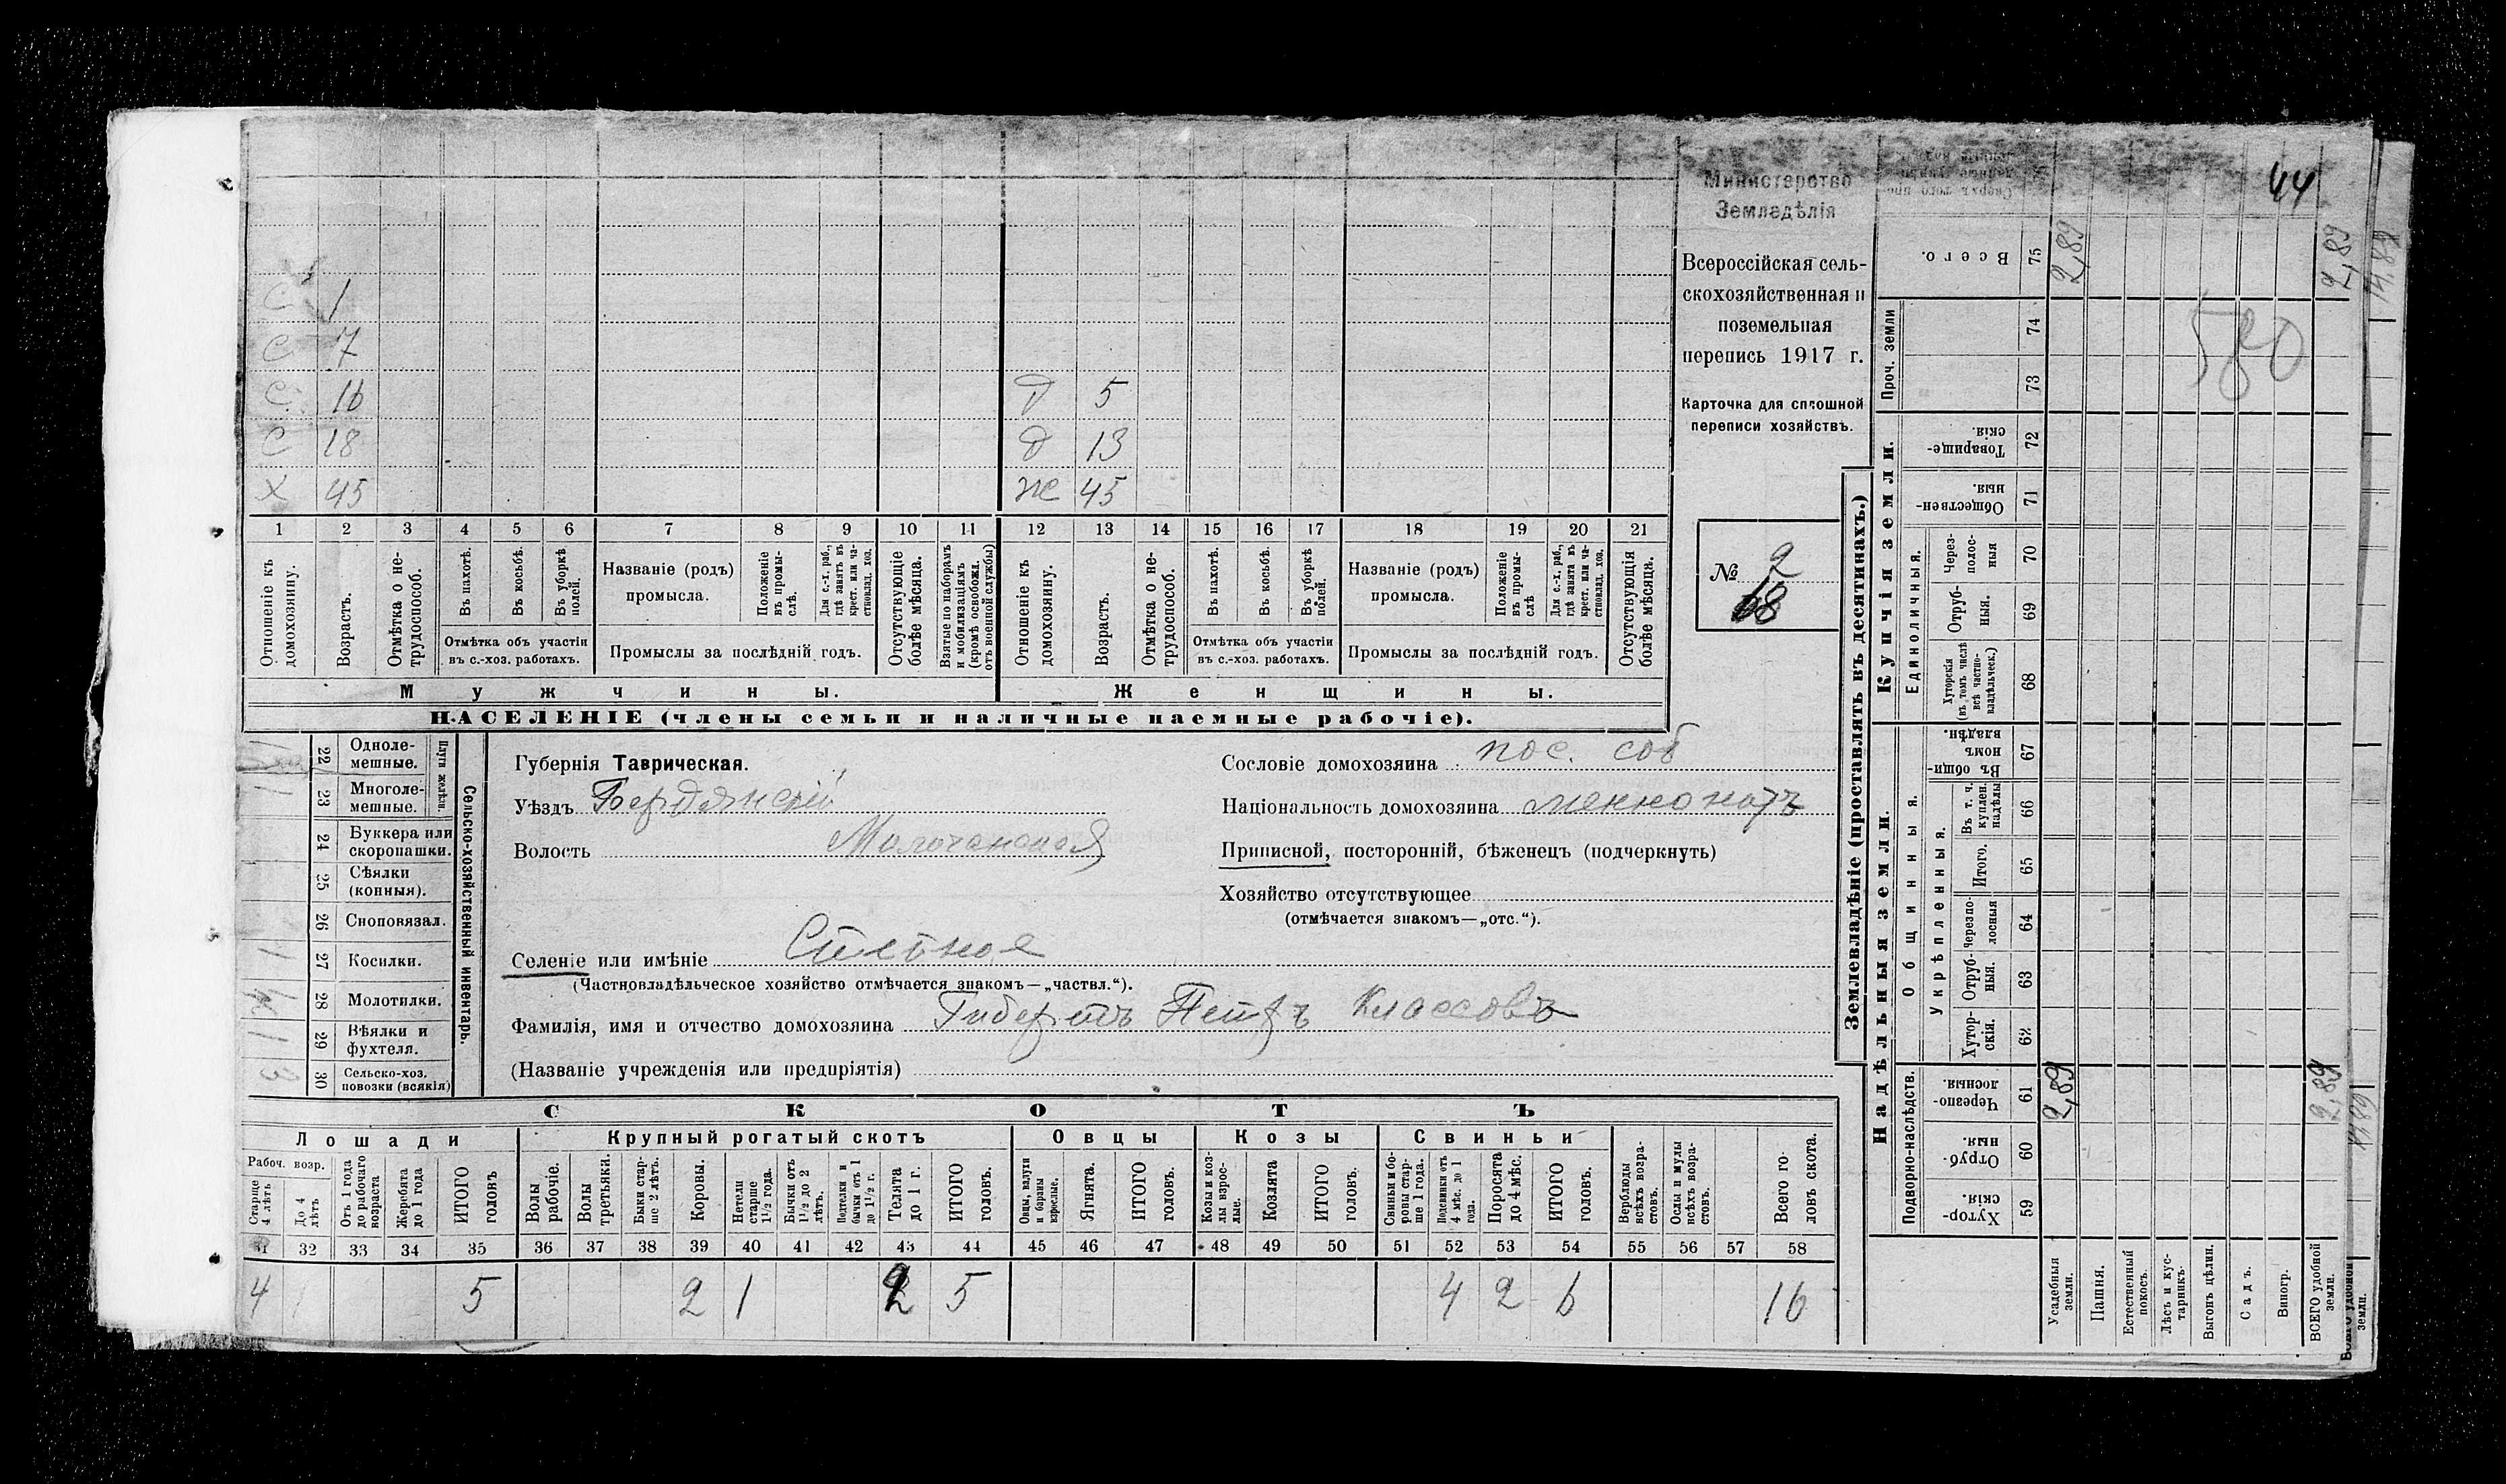 44
Министерство
Земледѣлія
Всероссійская сель-
скохозяйственная и
поземельная
перепись 1917 г.
Карточка для сплошной
переписи хозяйствъ.
№ 2
68
С 1
С 7
С 16 Д 5
С 18 Д 13
Х 45 Ж 45
1 2 3 4 5 6 7 8 9 10 11 12 13 14 15 16 17 18 19 20 21
Отношеніе къ домохознину.
Возрастъ.
Отмѣтка о не-трудоспособ.
Въ пахотѣ.
Въ косьбѣ.
Въ уборкѣ полей.
Отмѣтка объ участіи
въ с.-хоз. работахъ.
Названіе (родъ)
промысла.
Положеніе въ промы-слѣ.
Для с.-х. раб., гдѣ занятъ въ крест. или ча-стновлад. хоз.
Промыслы за послѣдній годъ.
Отсутствующіе болѣе мѣсяца.
Взятые по наборамъ и мобилизаціямъ (кромѣ освобожд. отъ военной службы)
Отношеніе къ домохознину.
Возрастъ.
Отмѣтка о не-трудоспособ.
Въ пахотѣ.
Въ косьбѣ.
Въ уборкѣ полей.
Отмѣтка объ участіи
въ с.-хоз. работахъ.
Названіе (родъ)
промысла.
Положеніе въ промы-слѣ
Для с.-х. раб., гдѣ занята въ крест. или ча-стновлад. хоз.
Промыслы за послѣдній годъ.
Отсутствующія болѣе мѣсяца.
Мужчины. Женщины.
НАСЕЛЕНІЕ (члены семьи и наличные наемные рабочіе).
Сельско-хозяйственный инвентарь.
Плуги желѣзн.
22 Одноле-мешные.
1 23 Многоле-мешные.
24 Буккера или скоропашки.
25 Сѣялки (конныя).
26 Сноповязал.
1 27 Косилки.
28 Молотилки.
1 29 Вѣялки и фухтеля.
3 30 Сельско-хоз. повозки (всякія)
Губернія Таврическая.
Уѣздъ Бердянскій
Волость Молочанская
Селеніе или имѣніе
(Частновладѣльческое хозяйство отмѣчается знакомъ—„частвл.“).
Фамилія, имя и отчество домохозяина Гибертъ Петръ Классовъ
(Названіе учрежденія или предпріятія)
Сословіе домохозяина пос. соб
Національность домохозяина меннонитъ
Приписной, посторонній, бѣженец (подчеркнуть)
Хозяйство отсутствующее
(отмѣчается знакомъ—„отс.“).
СКОТЪ
Лошади Крупный рогатый скотъ Овцы Козы Свиньи
Рабоч. возр.
Старше 4 лѣтъ
До 4 лѣтъ
Отъ 1 года до рабочаго возраста
Жеребята до 1 года
ИТОГО головъ
Волы рабочіе.
Волы третьяки.
Быки стар-ше 2 лѣтъ.
Коровы.
Нетели старше 1½ года.
Бычки отъ 1½ до 2 лѣтъ.
Подтелки и бычки отъ 1 до 1½ г.
Телята до 1 г.
ИТОГО головъ.
Овцы, валухи и бараны взрослые.
Ягнята.
ИТОГО головъ.
Козы и коз-лы взрос-лые.
Козлята
ИТОГО головъ.
Свиньи и бо-ровы стар-ше 1 года.
Подсвинки отъ 4 мѣс. до 1 года.
Поросята до 4 мѣс.
ИТОГО головъ.
Верблюды всѣхъ возра-стовъ.
Ослы и мулы всѣхъ возра-стовъ.
Всего го-ловъ скота.
31 32 33 34 35 36 37 38 39 40 41 42 43 44 45 46 47 48 49 50 51 52 53 54 55 56 57 58
4 1 5 2 1 2 5 4 2 6 16
Землевладѣніе (проставлять въ десятинахъ.)
Надѣльныя земли. Купчія земли.
Подворно-наслѣдств.
Общинныя.
Укрѣпленныя.
Единоличныя.
Проч. земли
59 Хутор-скія.
60 Отруб-ныя.
61 Черезпо-лосныя.
62 Хутор-скія.
63 Отруб-ныя.
64 Черезпо-лосныя
65 Итого.
66 Въ т. ч. куплен. надѣлы
67 Въ общи-номъ владѣн.
68 Хуторскія (въ томъ числѣ всѣ частно-владѣльческ.)
69 Отруб-ныя.
70 Через-полос-ныя
71 Обществен-ныя.
72 Товарище-скія.
73
74
75 Всего.
Усадебныя земли.
Пашня.
Естественный покосъ.
Лѣсъ и кус-тарникъ
Выгонъ цѣлин.
Садъ.
Виногр.
ВСЕГО удобной земли.
2,89
2,89
2,89
2,89
14,89
580